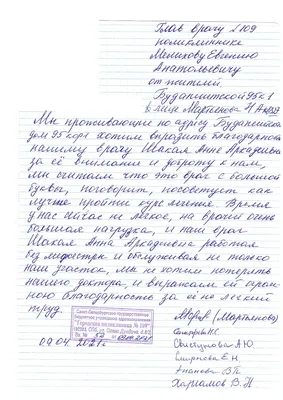 Глав врачу №109
поликлиннике
Мелихову Евгению
Анатольевичу
от жителей
Будапештской 95 к 1
в лице Мартьянова
Мы проживающие по адресу Будапештская
дом 95 кор1 хотим выразить благодарность
нашему врачу Шакая Анне Аркадьевне
за её внимание и доброту к нам,
мы считаем что это врач с большой
буквы, поговорит, посоветует как
лучше пройти курс лечения. Время
у нас сейчас не легкое, на врачей очень
большая нагрузка, и наш врач
Шакая Анна Аркадьевна работая
без медсестры и обслуживая не только
наш участок, мы не хотим потерять
нашего доктора, и выражаем ей огром-
ную благодарность за её не легкий
труд.
(Мартьянова)
Санкт-Петербургское государственное
бюджетное учреждение здравоохранения
"Городская поликлиника № 109"
09.04 2021г
Смирнова Е.Н.
Харламов В.Н